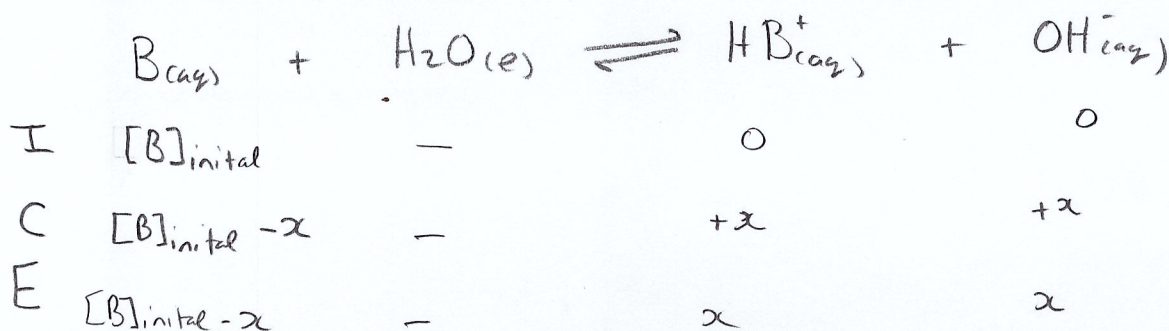 B(aq) + H2O(l) ⇌ HB+(aq) + OH-(aq)
I [B]inital — 0 0
C [B]inital -x — +x +x
E [B]inital -x — x x